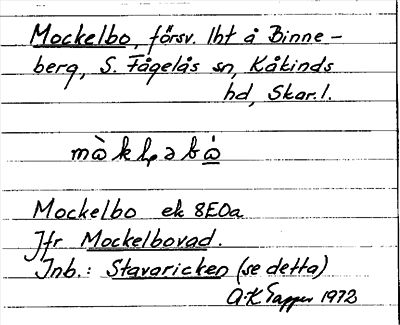 Mockelbo, försv. lht å Binne-
berg, S. Fågelås sn, Kåkinds
hd, Skar.l.
Mockelbo ek 8E0a
Jfr Mockelbovad.
Inb.: Stavaricken (se detta)
A-K Tapper 1972